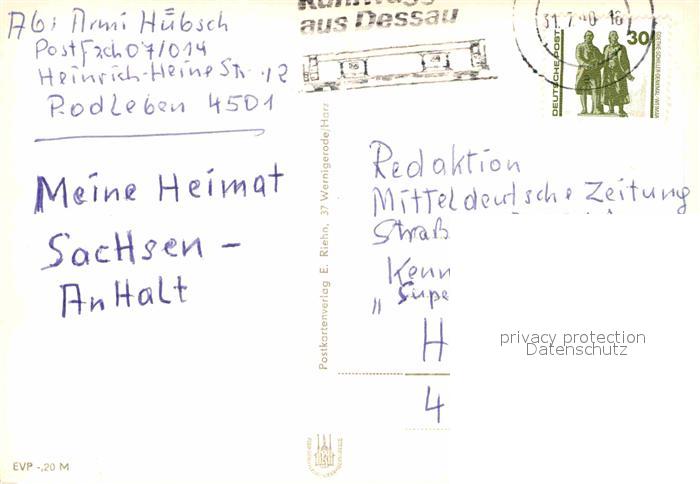 Ab: Armi Hübsch
Postfach 07/014
Heinrich-Heine Str. 12
Rodleben 4501
Meine Heimat
Sachsen -
Anhalt
aus Dessau
31.7.90-16
30
DEUTSCHE POST
GOETHE-SCHILLER-DENKMAL, WEIMAR
Postkartenverlag E. Riehn, 37 Wernigerode/Harz
Redaktion
Mitteldeutsche Zeitung
Straß
Kenn
"Supe
H
4
privacy protection
Datenschutz
EVP -,20 M